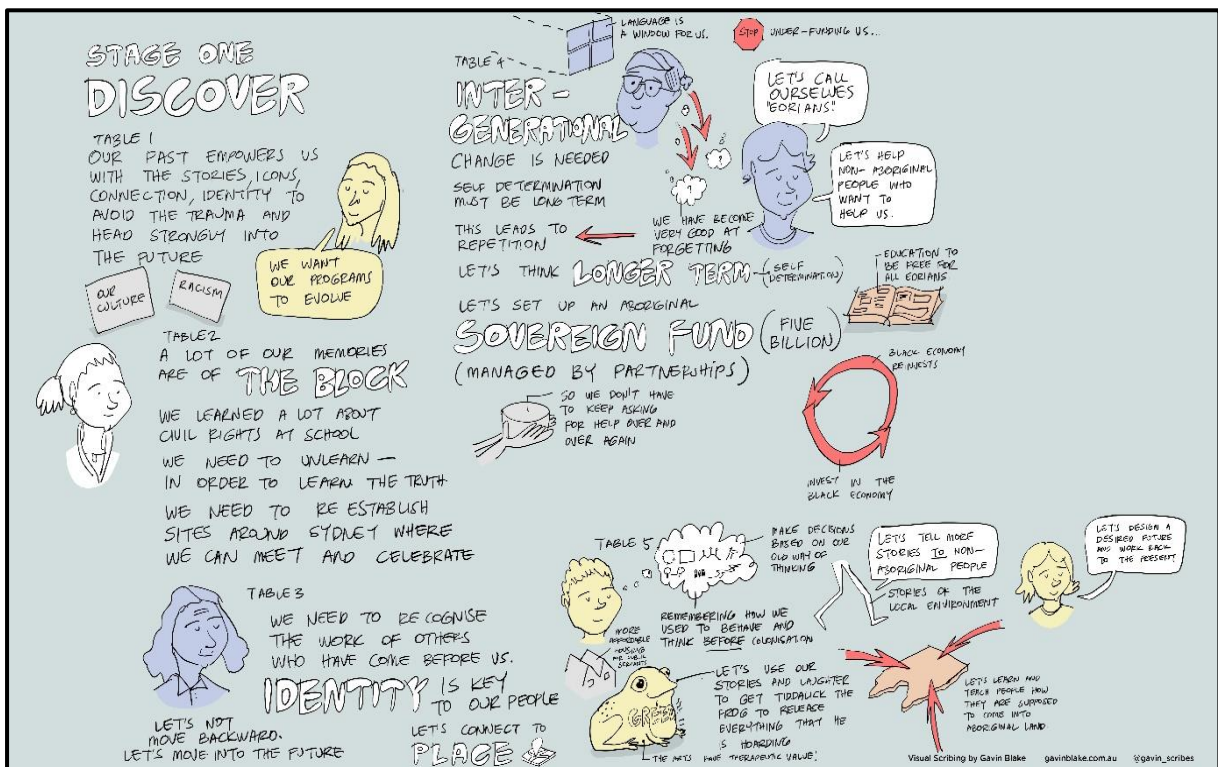 STAGE ONE
DISCOVER
TABLE 1
OUR PAST EMPOWERS US
WITH THE STORIES, ICONS,
CONNECTION, IDENTITY TO
AVOID THE TRAUMA AND
HEAD STRONGLY INTO
THE FUTURE
WE WANT
OUR PROGRAMS
TO EVOLVE
OUR
CULTURE
RACISM
TABLE 2
A LOT OF OUR MEMORIES
ARE OF THE BLOCK
WE LEARNED A LOT ABOUT
CIVIL RIGHTS AT SCHOOL
WE NEED TO UNLEARN —
IN ORDER TO LEARN THE TRUTH
WE NEED TO RE ESTABLISH
SITES AROUND SYDNEY WHERE
WE CAN MEET AND CELEBRATE
TABLE 3
WE NEED TO RECOGNISE
THE WORK OF OTHERS
WHO HAVE COME BEFORE US.
IDENTITY IS KEY
TO OUR PEOPLE
LET'S NOT
MOVE BACKWARD.
LET'S MOVE INTO THE FUTURE
LET'S CONNECT TO
PLACE
LANGUAGE IS
A WINDOW FOR US.
STOP UNDER-FUNDING US...
TABLE 4
INTER-
GENERATIONAL
CHANGE IS NEEDED
SELF DETERMINATION
MUST BE LONG TERM
THIS LEADS TO
REPETITION
WE HAVE BECOME
VERY GOOD AT
FORGETTING
?
?
?
LET'S CALL
OURSELVES
"EORIANS"
LET'S HELP
NON-ABORIGINAL
PEOPLE WHO
WANT TO
HELP US.
LET'S THINK LONGER TERM — (SELF
DETERMINATION)
EDUCATION TO
BE FREE FOR
ALL EORIANS
LET'S SET UP AN ABORIGINAL
SOVEREIGN FUND (FIVE
BILLION)
(MANAGED BY PARTNERSHIPS)
SO WE DON'T HAVE
TO KEEP ASKING
FOR HELP OVER AND
OVER AGAIN
BLACK ECONOMY
REINVESTS
INVEST IN THE
BLACK ECONOMY
TABLE 5
MAKE DECISIONS
BASED ON OUR
OLD WAY OF
THINKING
REMEMBERING HOW WE
USED TO BEHAVE AND
THINK BEFORE COLONISATION
MORE
AFFORDABLE
HOUSING
FOR PUBLIC
SERVANTS
LET'S TELL MORE
STORIES TO NON-
ABORIGINAL PEOPLE
STORIES OF THE
LOCAL ENVIRONMENT
LET'S DESIGN A
DESIRED FUTURE
AND WORK BACK
TO THE PRESENT!
GREED
LET'S USE OUR
STORIES AND LAUGHTER
TO GET TIDDALICK THE
FROG TO RELEASE
EVERYTHING THAT HE
IS HOARDING
THE ARTS HAVE THERAPEUTIC VALUE!
LET'S LEARN AND
TEACH PEOPLE HOW
THEY ARE SUPPOSED
TO COME INTO
ABORIGINAL LAND
Visual Scribing by Gavin Blake gavinblake.com.au @gavin_scribes